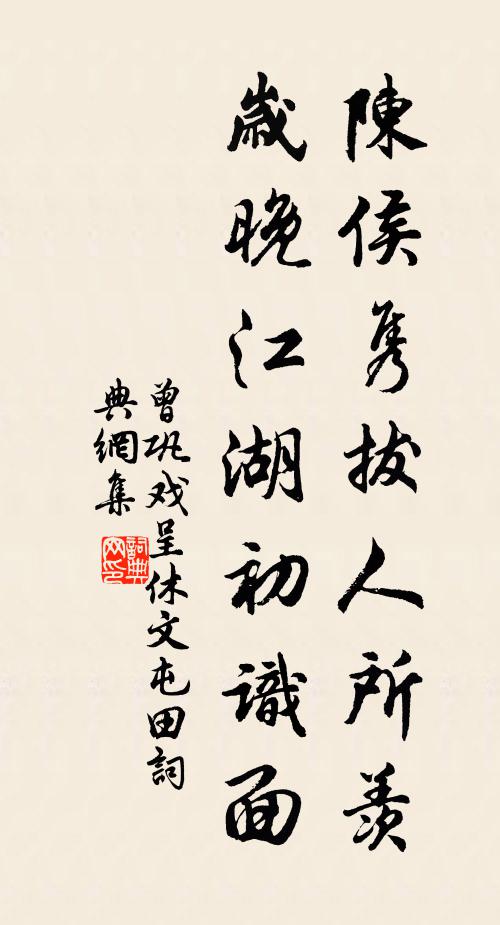 陳侯隽拔人所羨
歲晚江湖初識面
曾巩戏呈休文屯田詞
典網集
詞典网印